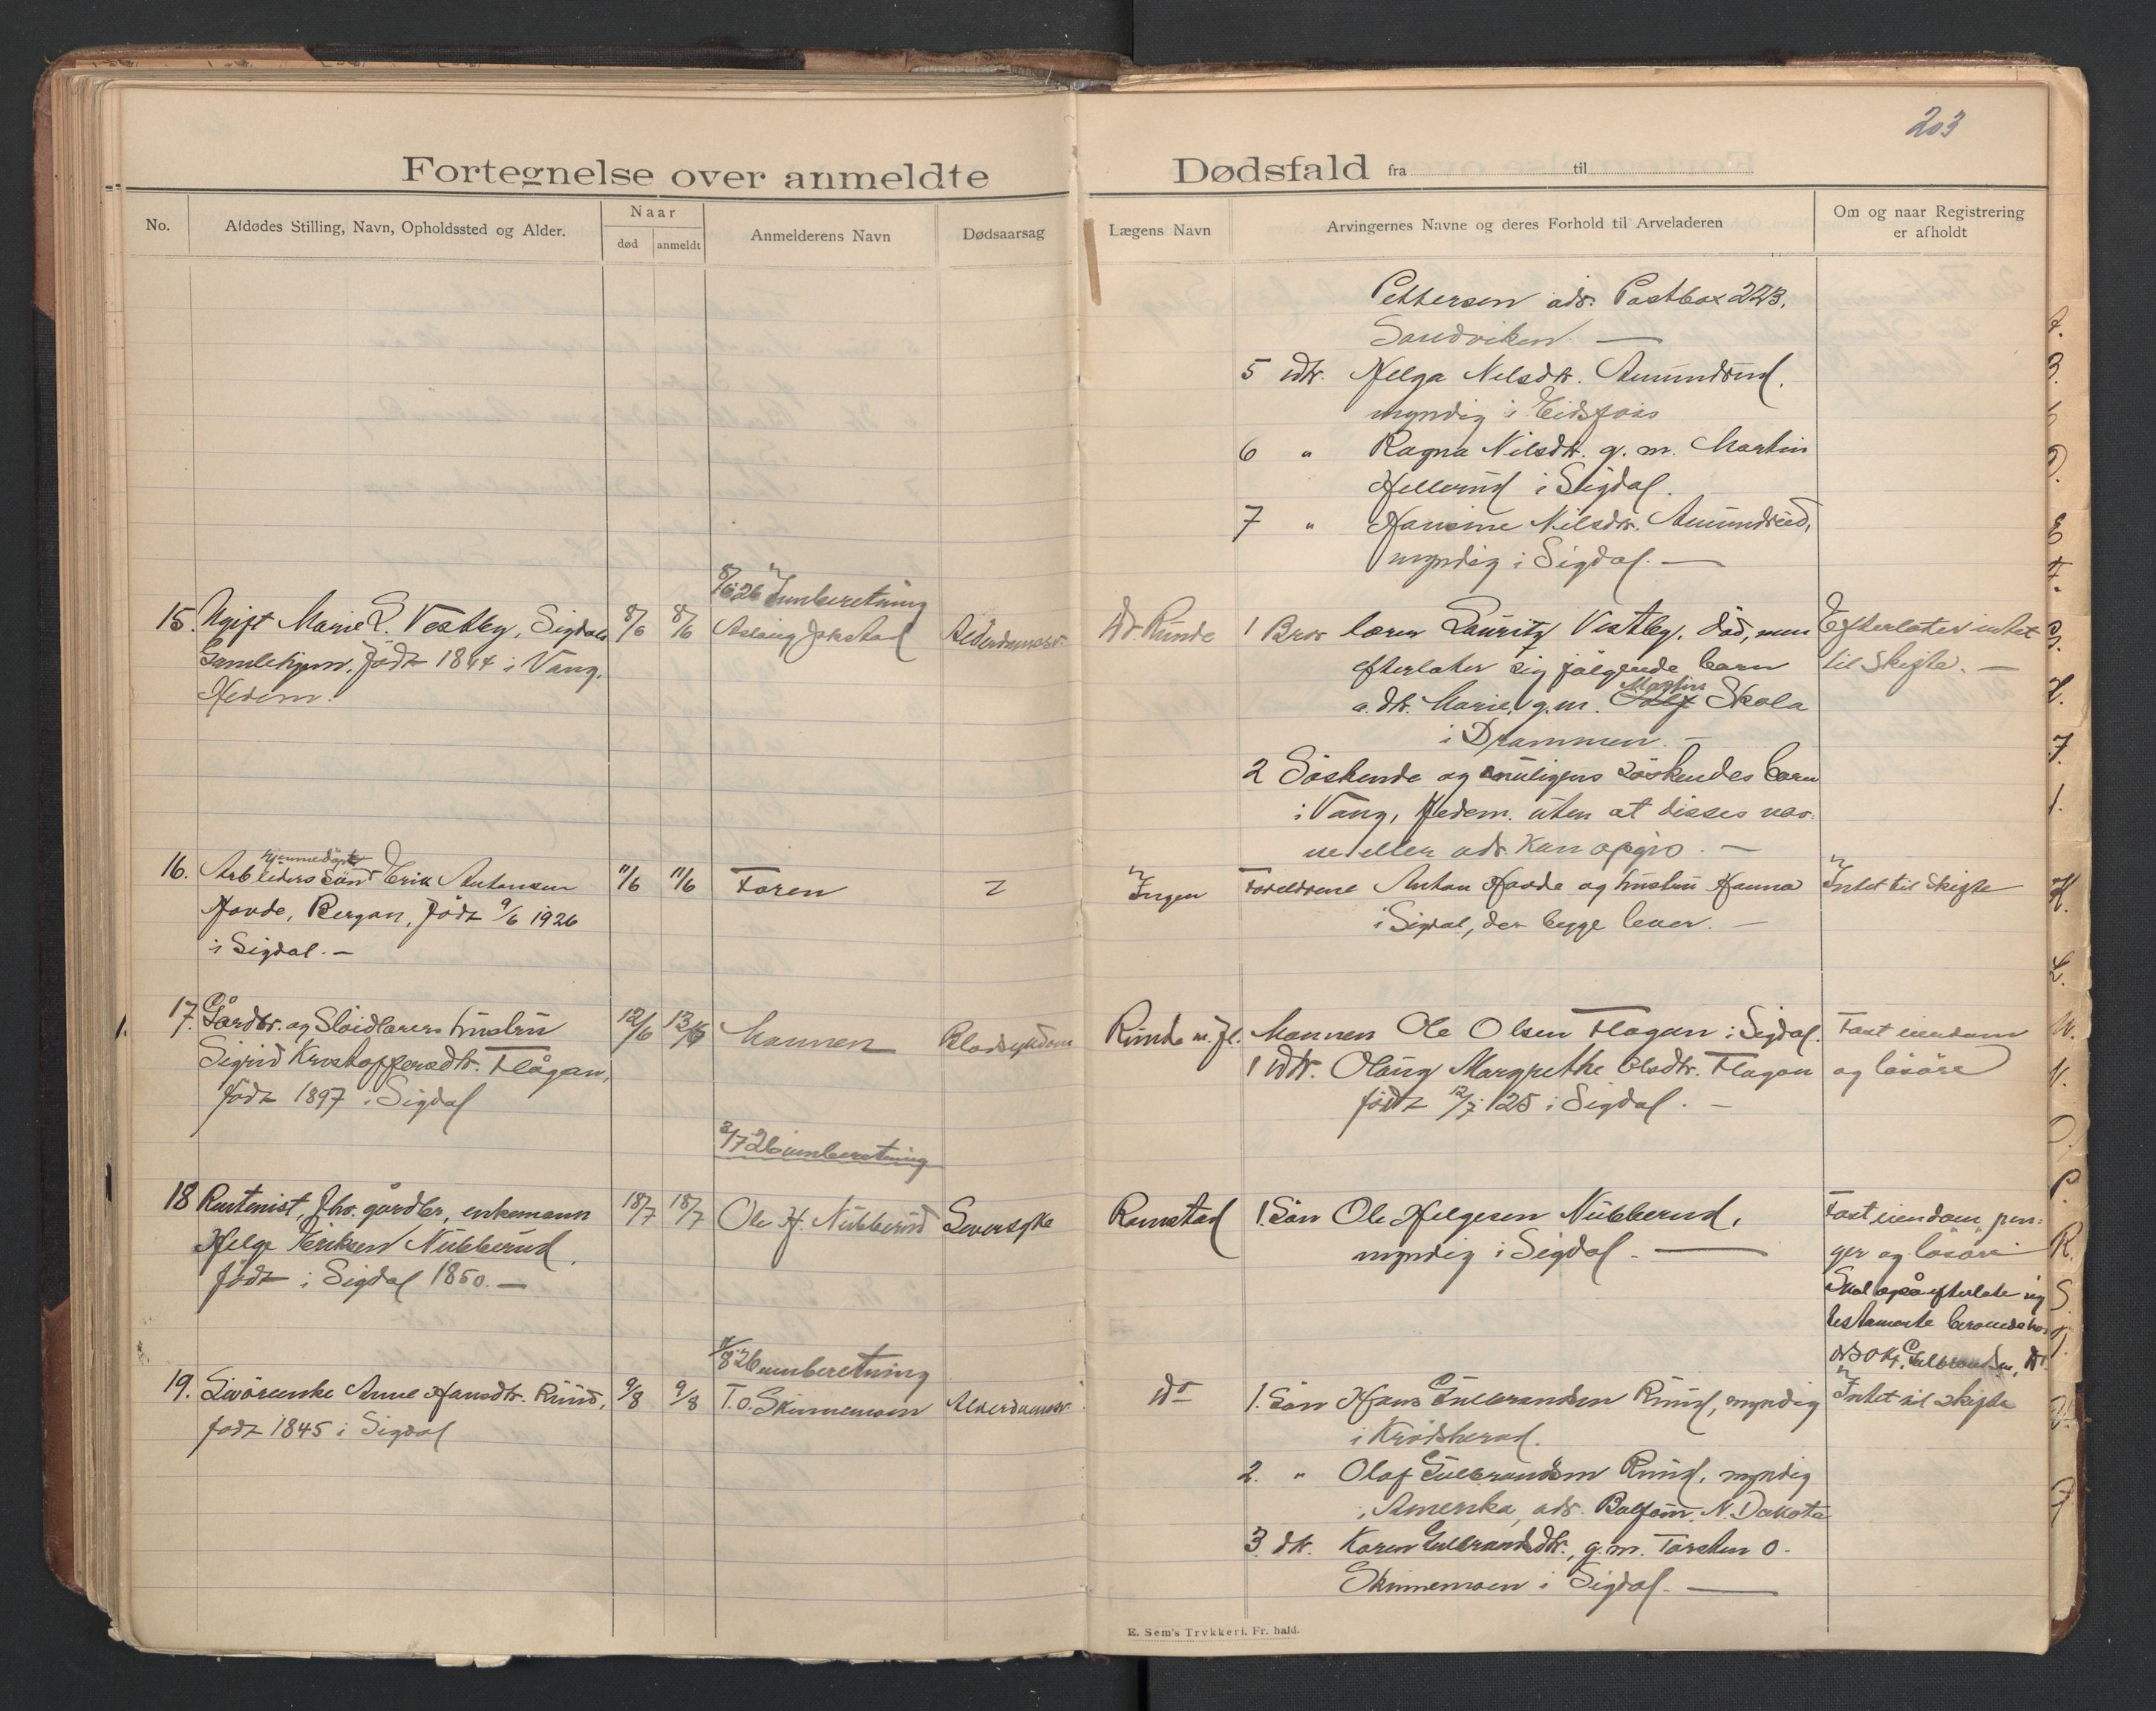 203
Fortegnelse over anmeldte Dødsfald fra til
No.
Afdødes Stilling, Navn, Opholdssted og Alder.
Naar
død
anmeldt
Anmelderens Navn
Dødsaarsag
Lægens Navn
Arvingernes Navne og deres Forhold til Arveladeren
Om og naar Registrering
er afholdt
Pettersen adr. Postbox 223.
Sandviken. —
5 dtr. Helga Nilsdtr. Amundrud,
myndig i Eidsfoss
6 " Ragna Nilsdtr. g. m. Martin
Hellerud i Sigdal.
7 " Hansine Nilsdtr. Amundrud,
myndig i Sigdal. —
8/6 26 Innberetning
15. Ugift Marie L. Vestby, Sigdals
Gamlehjem, født 1844 i Vang,
Hedem.
8/6
8/6
Aslaug Jokstad
Alderdomssv.
Dr. Runde
1 Bror lærer Lauritz Vestby, død, men
efterlater sig følgende barn
a. dtr. Marie, g. m. Martin Skola
i Drammen. —
2 Søskende og muligens søskendes barn
i Vang, Hedem. uten at disses nav-
ne eller adr. kan opgis. —
Efterlater intet
til skifte. —
16. Arbeiders hjemmedøpte søn Erik Antonsen
Hovde, Bergan, født 9/6 1926
i Sigdal. —
11/6
11/6
Faren
Ingen
Foreldrene Anton Hovde og hustru Hanna
i Sigdal, der begge lever. —
Intet til skifte
17. Gårdbr. og Sløidlærers hustru
Sigrid Kristoffersdtr. Flågan,
født 1897 i Sigdal
12/6
13/6
Mannen
Blodsykdom
Runde m. fl.
Mannen Ole Olsen Flagan i Sigdal.
1 dtr. Olaug Margrethe Olsdtr. Flagan
født 12/7 125 i Sigdal. —
Fast eiendom
og løsøre
2/7 26 innberetning
18 Rentenist, fhv. gårdbr., enkemann
Helge Eriksen Nubberud,
født i Sigdal 1850. —
18/7
18/7
Ole H. Nubberud
Leversyke
Ramstad
1. Søn Ole Helgesen Nubberud,
myndig i Sigdal. —
Fast eiendom, pen-
ger og løsøre
Skal også efterlate sig
testamente beroende hos
Gulbrandsen, Dr.
8 26 innberetning
19. Livørenke Anne Hansdtr. Ruud,
født 1845 i Sigdal
9/8
9/8
T. O. Skinnemoen
Alderdomssv.
Do
1. Søn Hans Gulbrandsen Ruud, myndig
i Krødsherad.
2. " Olaf Gulbrandsen Ruud, myndig
i Amerika, adr. Balfour, N. Dakota
3. dtr. Karen Gulbrandsdtr., g. m. Torsten O.
Skinnemoen i Sigdal. —
Intet til skifte
E. Sem's Trykkeri, Fr. hald.